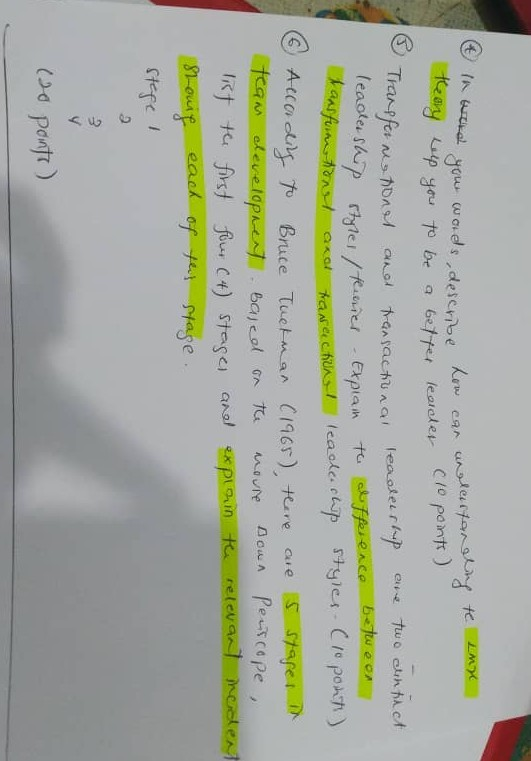 ④ In your words, describe how can understanding the LMX
theory help you to be a better leader (10 points)
⑤ Transformational and transactional leadership are two distinct
leadership styles/theories. Explain the difference between
transformational and transactional leadership styles. (10 points)
⑥ According to Bruce Tuckman (1965), there are 5 stages in
team development. Based on the movie Down Periscope,
list the first four (4) stages and explain the relevant incident
showing each of this stage.
Stage 1
2
3
4
(20 points)